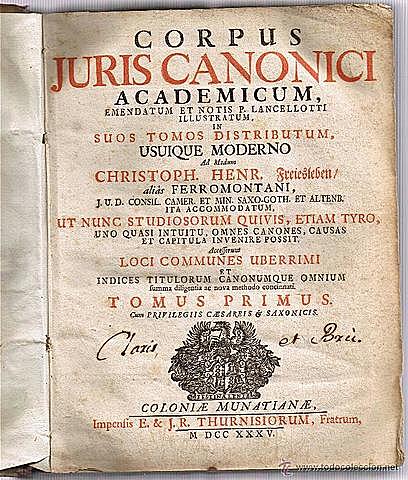 CORPUS
JURIS CANONICI
ACADEMICUM,
EMENDATUM ET NOTIS P. LANCELLOTTI
ILLUSTRATUM,
IN
SUOS TOMOS DISTRIBUTUM,
USUIQUE MODERNO
Ad Modum
CHRISTOPH. HENR. Freiesleben/
aliàs FERROMONTANI,
J. U. D. CONSIL. CAMER. ET MIN. SAXO-GOTH. ET ALTENB.
ITA ACCOMMODATUM,
UT NUNC STUDIOSORUM QUIVIS, ETIAM TYRO,
UNO QUASI INTUITU, OMNES CANONES, CAUSAS
ET CAPITULA INVENIRE POSSIT.
Accesserunt
LOCI COMMUNES UBERRIMI
ET
INDICES TITULORUM CANONUMQUE OMNIUM
summa diligentia ac nova methodo concinnati.
TOMUS PRIMUS.
Cum PRIVILEGIIS CÆSAREIS & SAXONICIS.
et
COLONIÆ MUNATIANÆ,
Impensis E. & J. R. THURNISIORUM, Fratrum,
M DCC XXXV.
todocoleccion.net